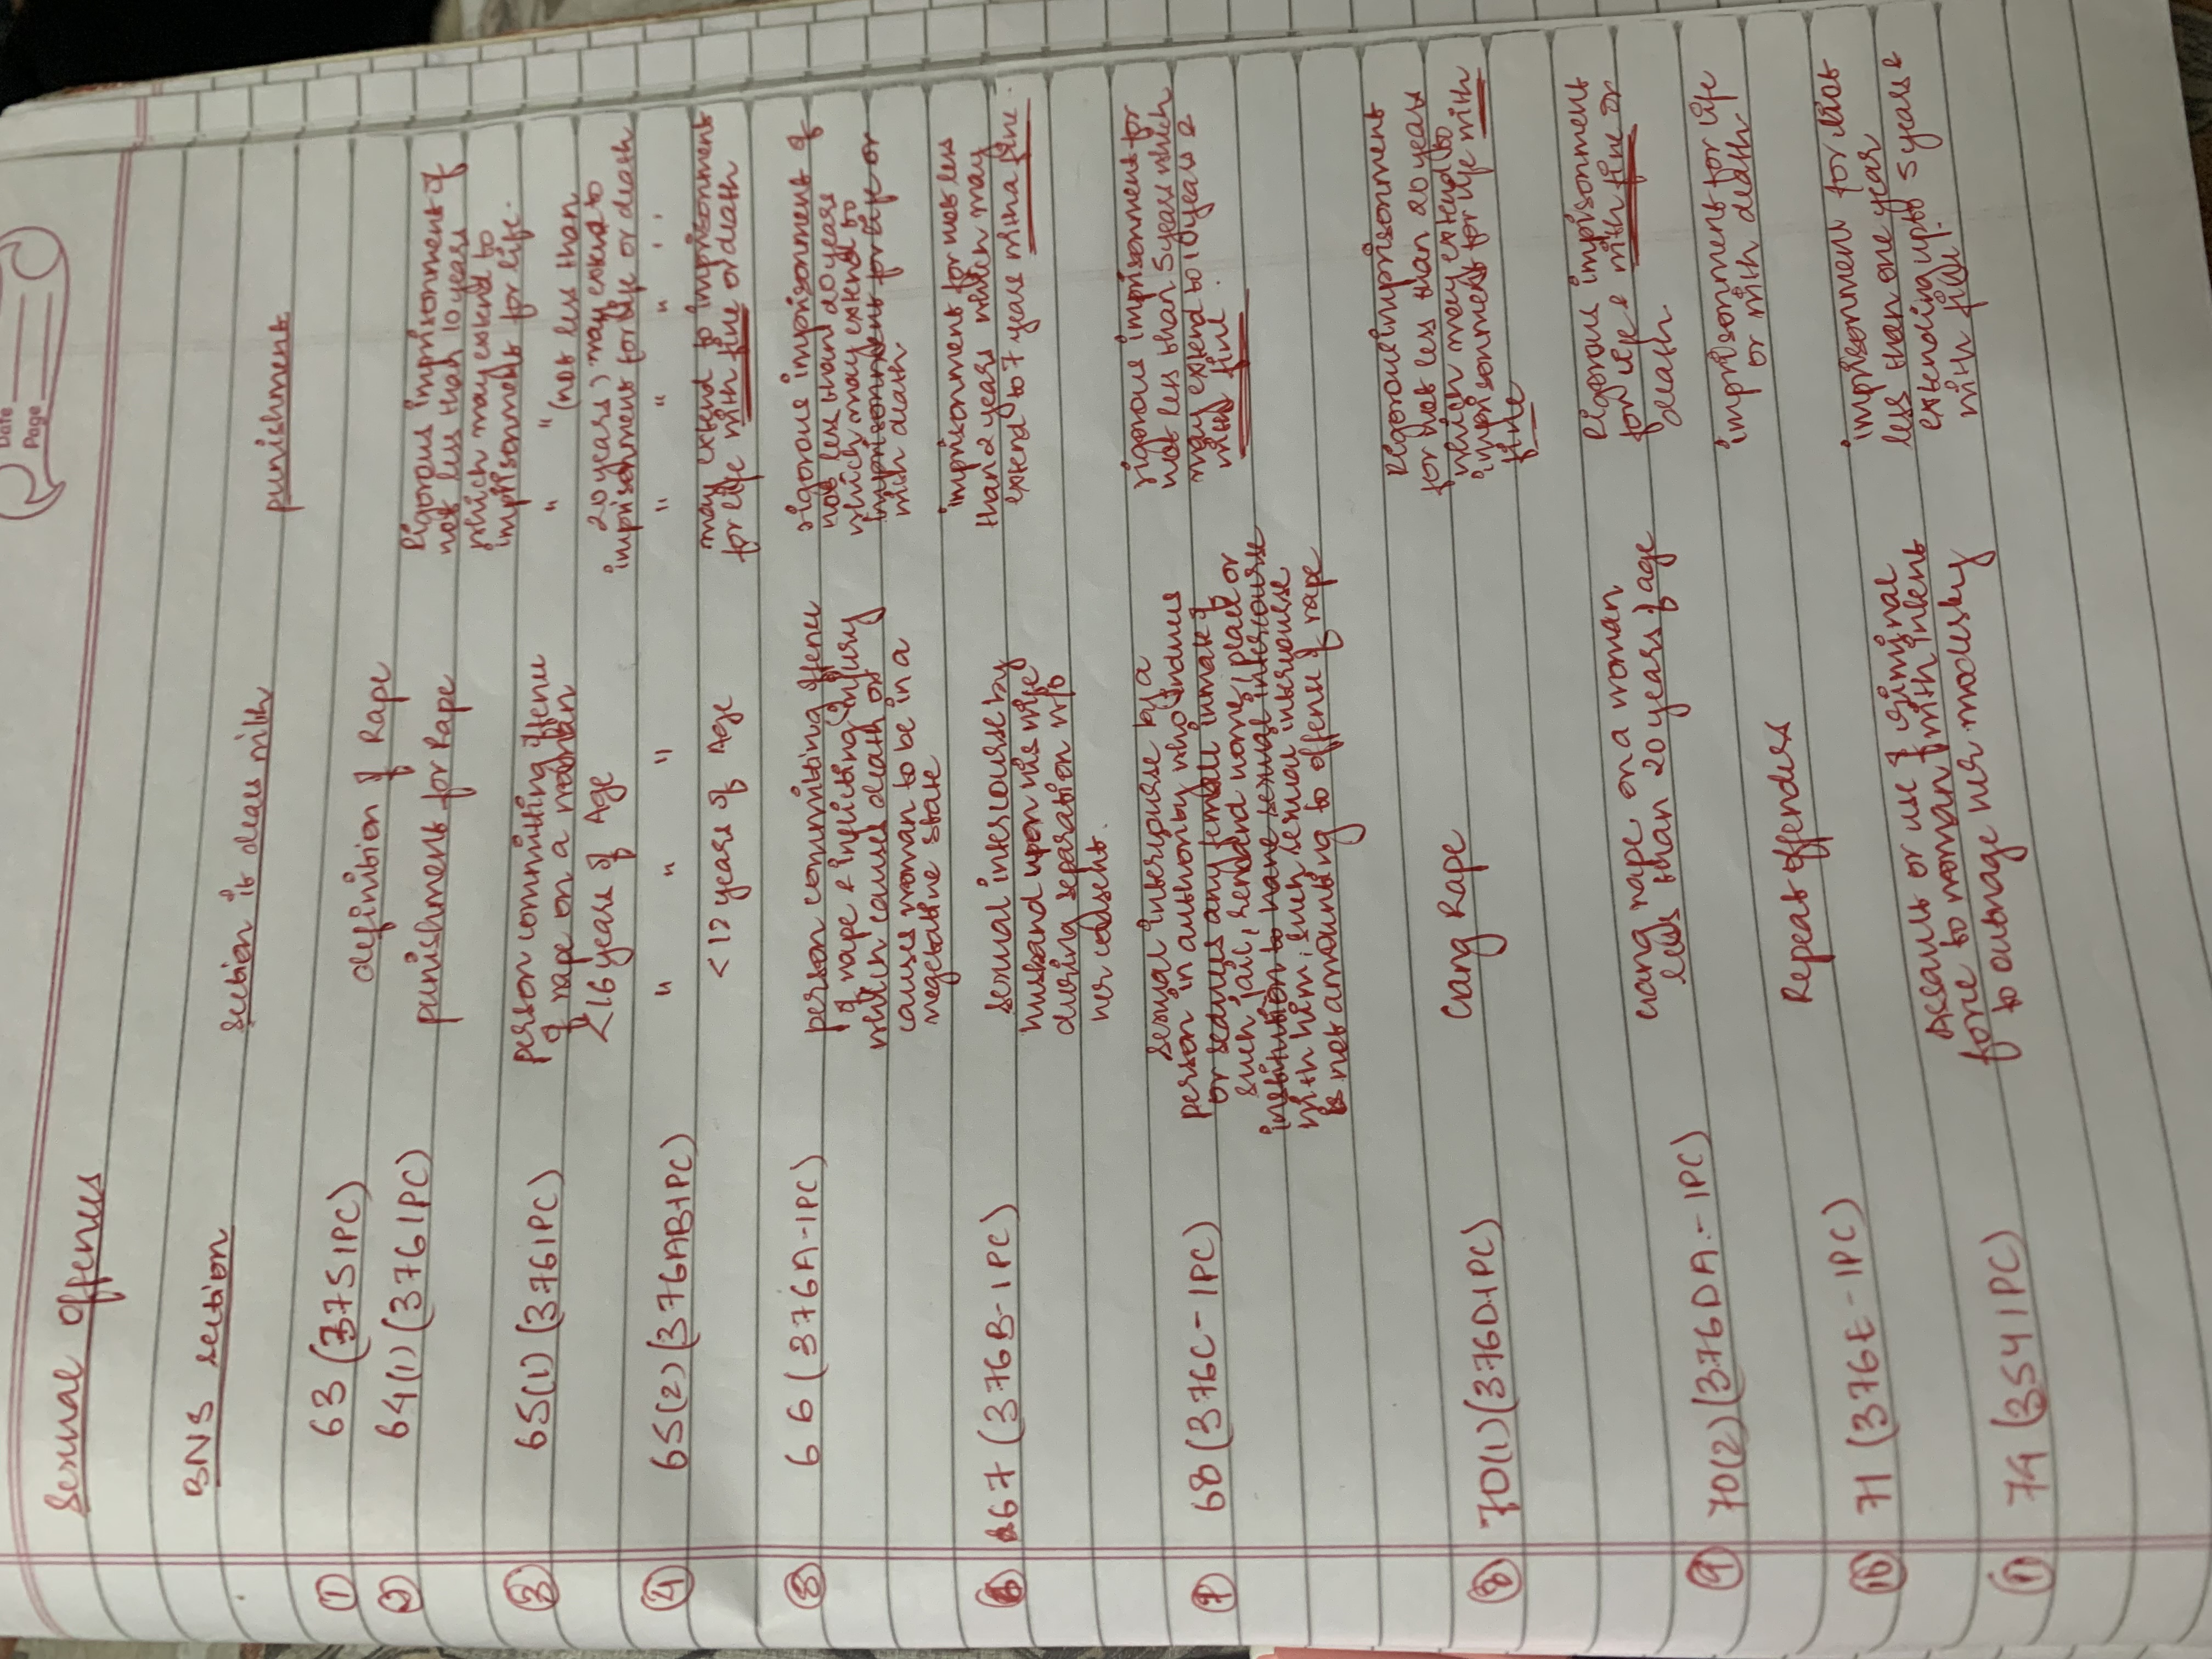 Date
Page
Sexual Offences
BNS section
section it deals with
punishment
① 63 (375 IPC)
definition of Rape
② 64(1) (376 IPC)
punishment for Rape
Rigorous imprisonment of
not less than 10 years
which may extend to
imprisonment for life.
③ 65(1) (376 IPC)
person committing offence
of rape on a woman
<16 years of Age
" " (not less than
20 years) may extend to
imprisonment for life or death
④ 65(2) (376AB-IPC)
" " "
<12 years of Age
" " " ' '
may extend to imprisonment
for life with fine or death
⑤ 66 (376A-IPC)
person committing offence
of rape & inflicting injury
which causes death or
causes woman to be in a
vegetative state
rigorous imprisonment of
not less than 20 years
which may extend to
imprisonment for life or
with death
⑥ 67 (376B-IPC)
sexual intercourse by
husband upon his wife
during separation w/o
her consent.
imprisonment for not less
than 2 years which may
extend to 7 years with a fine.
⑦ 68 (376C-IPC)
sexual intercourse by a
person in authority who induces
or seduces any female inmate of
such jail, remand home, place or
institution to have sexual intercourse
with him, such sexual intercourse
is not amounting to offence of rape
rigorous imprisonment for
not less than 5 years which
may extend to 10 years &
with fine.
⑧ 70(1) (376D-IPC)
Gang Rape
Rigorous imprisonment
for not less than 20 years
which may extend to
imprisonment for life with
fine
⑨ 70(2) (376DA-IPC)
Gang rape on a woman
less than 20 years of age
Rigorous imprisonment
for life & with fine or
death.
⑩ 71 (376E-IPC)
Repeat offenders
imprisonment for life
or with death
⑪ 74 (354 IPC)
Assault or use of criminal
force to woman with intent
to outrage her modesty
imprisonment for not
less than one year
extending upto 5 years &
with fine.